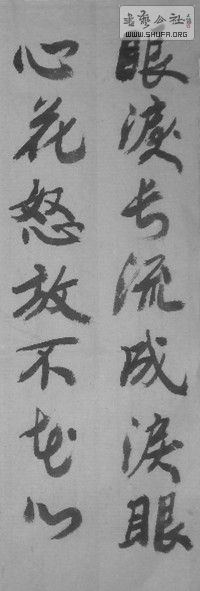 書藝公社
WWW.SHUFA.ORG
眼淚长流成淚眼
心花怒放不花心